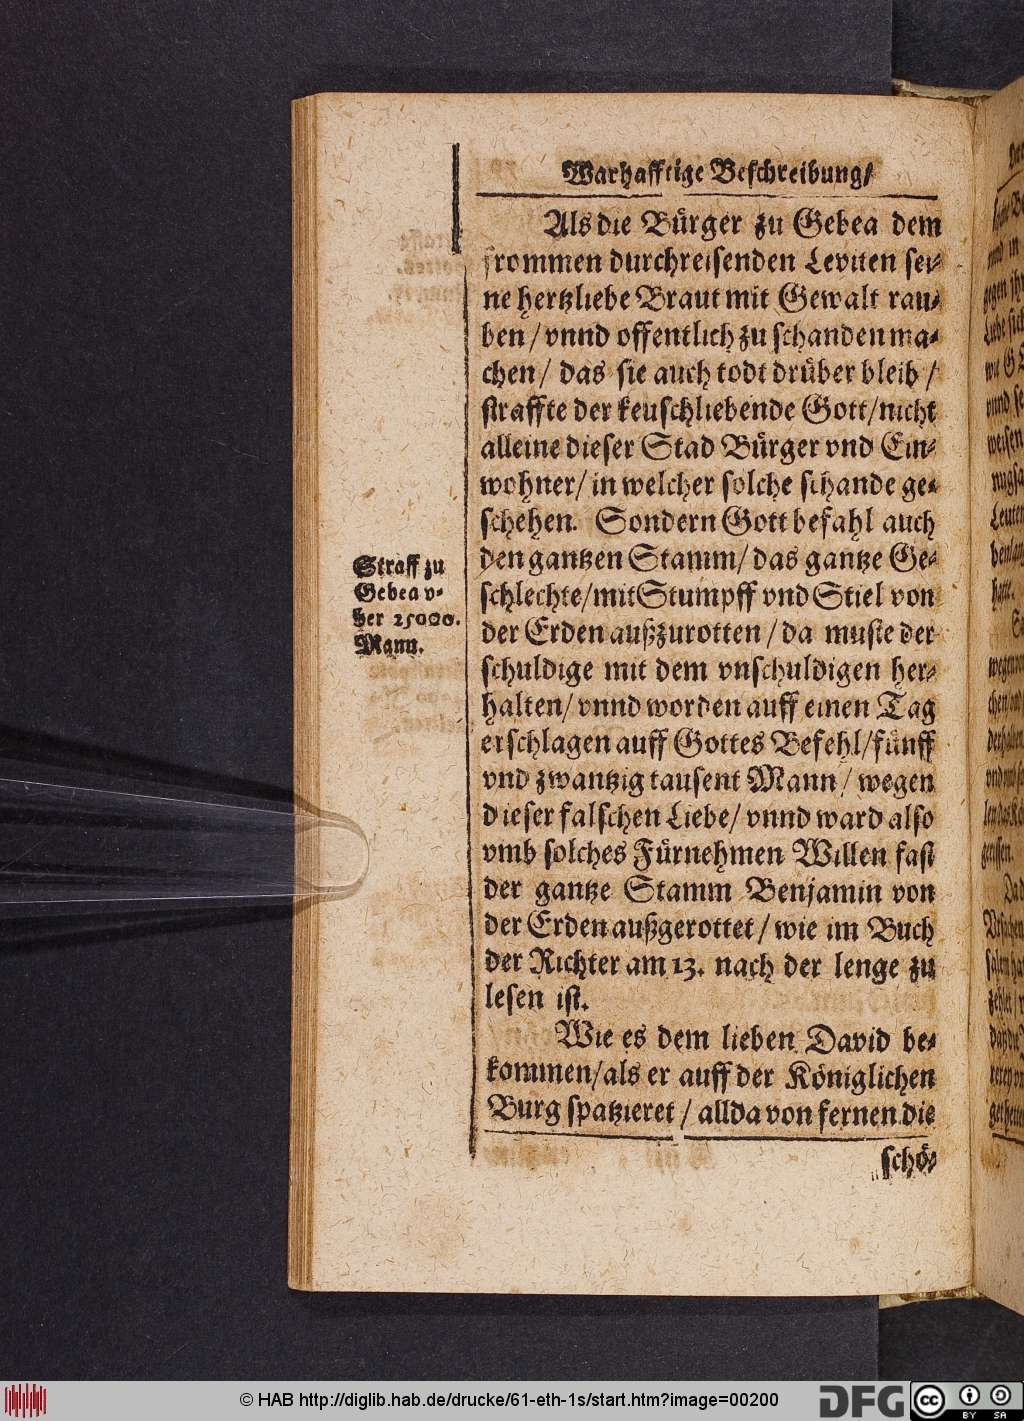 Warhafftige Beschreibung/
Als die Bürger zu Gebea dem
frommen durchreisenden Leviten sei-
ne hertzliebe Braut mit Gewalt rau-
ben/ vnnd offentlich zu schanden ma-
chen/ das sie auch todt drüber bleib/
straffte der keuschliebende Gott/ nicht
alleine dieser Stad Bürger vnd Ein-
wohner/ in welcher solche schande ge-
schehen. Sondern Gott befahl auch
den gantzen Stamm/ das gantze Ge-
schlechte/ mit Stumpff vnd Stiel von
der Erden außzurotten/ da muste der
schuldige mit dem vnschuldigen her-
halten/ vnnd worden auff einen Tag
erschlagen auff Gottes Befehl/ fünff
vnd zwantzig tausent Mann/ wegen
dieser falschen Liebe/ vnnd ward also
vmb solches Fürnehmen Willen fast
der gantze Stamm Benjamin von
der Erden außgerottet/ wie im Buch
der Richter am 13. nach der lenge zu
lesen ist.
Wie es dem lieben David be-
kommen/ als er auff der Königlichen
Burg spatzieret/ allda von fernen die
schö-
Straff zu
Gebea v-
ber 25000.
Mann.
© HAB http://diglib.hab.de/drucke/61-eth-1s/start.htm?image=00200
DFG
cc
BY SA